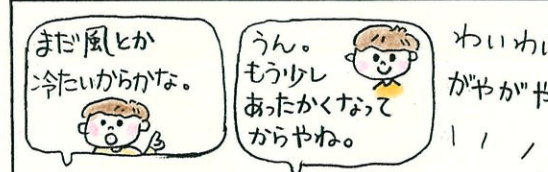 まだ風とか
冷たいからかな。
うん。
もう少し
あったかくなって
からやね。
わいわい
がやがや